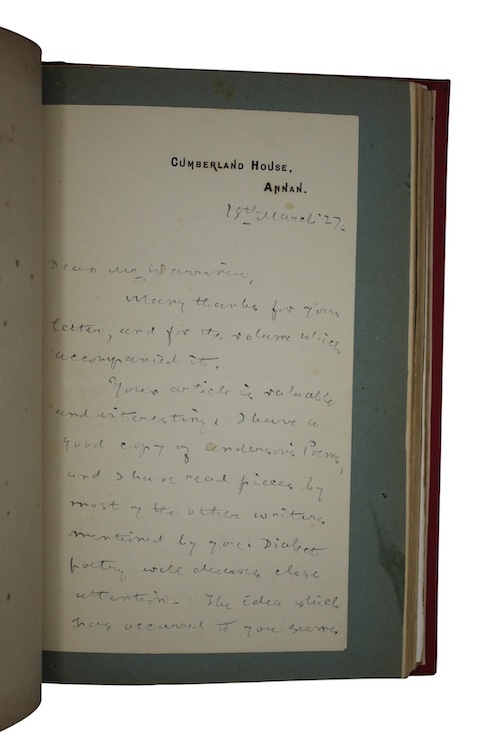 CUMBERLAND HOUSE,
ANNAN.
19th March '27.
Dear Mr Warriner,
Many thanks for your
letter, and for the volume which
accompanied it.
Your article is valuable
and interesting. I have a
good copy of Anderson's Poems,
and I have read pieces by
most of the other writers
mentioned by you. Dialect
poetry well deserves close
attention. The idea which
has occurred to you seems